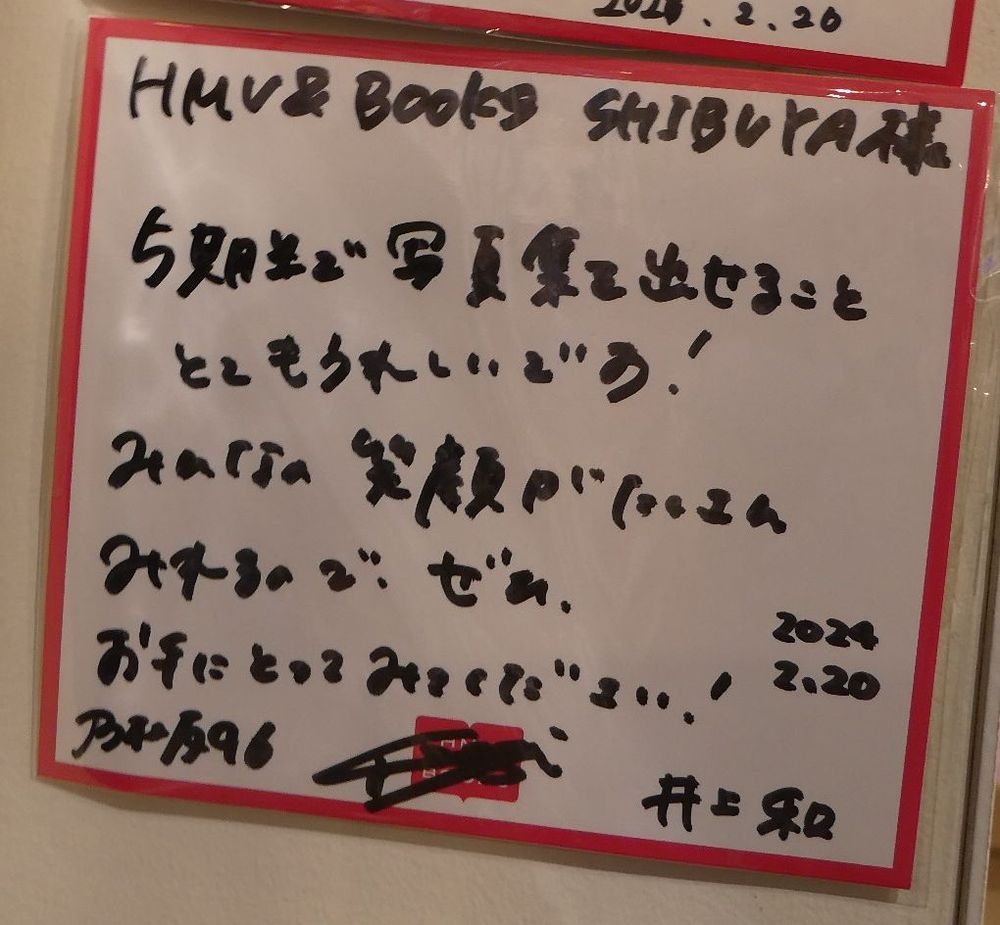 2024.2.20
HMV& BOOKS SHIBUYA様
5期生で写真集を出せること
とてもうれしいです!
みんなの笑顔がたくさん
みれるので、ぜひ、
お手にとってみてください!
2024
2.20
乃木坂46
井上和